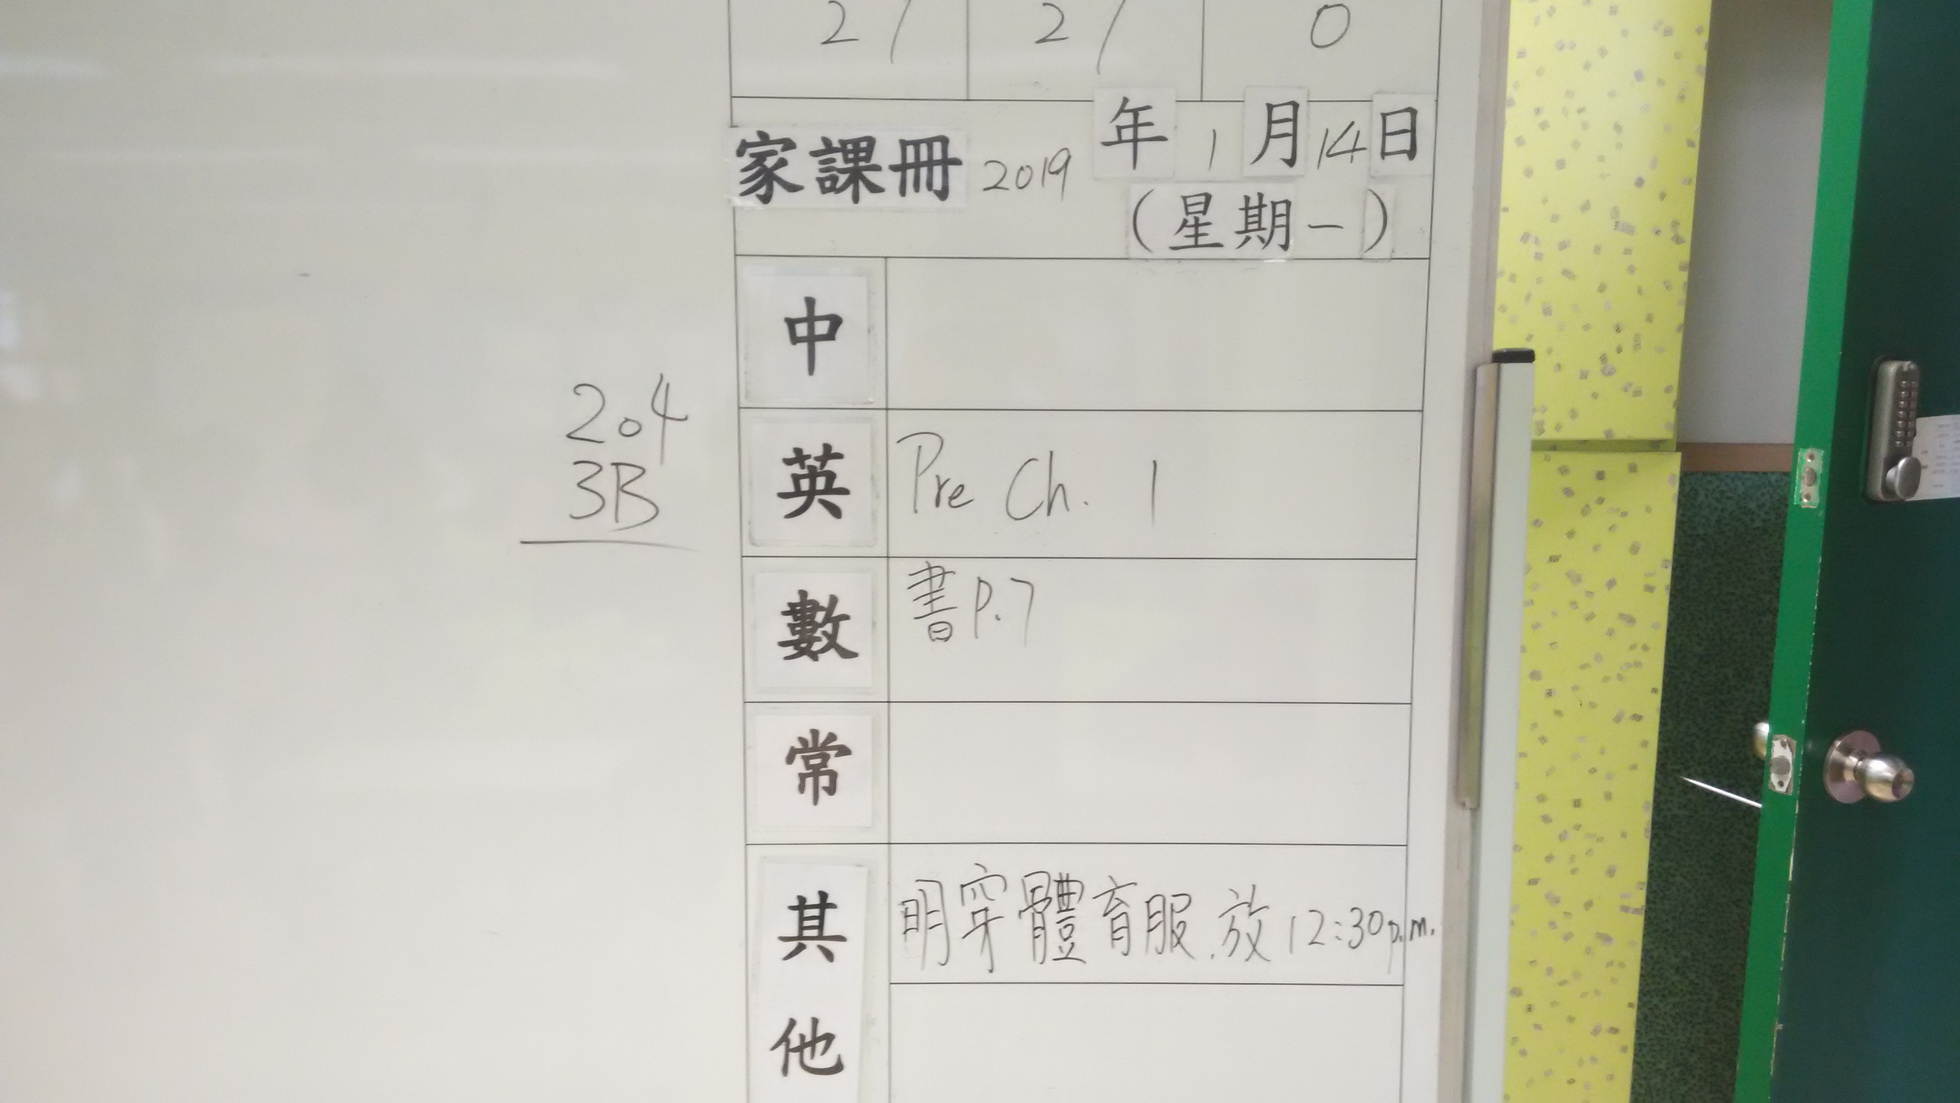 27 27 0
家課冊 2019 年 1 月 14 日
(星期一)
中
204
3B
英 Pre Ch. 1
數 書P.7
常
其他 明穿體育服.放12:30p.m.